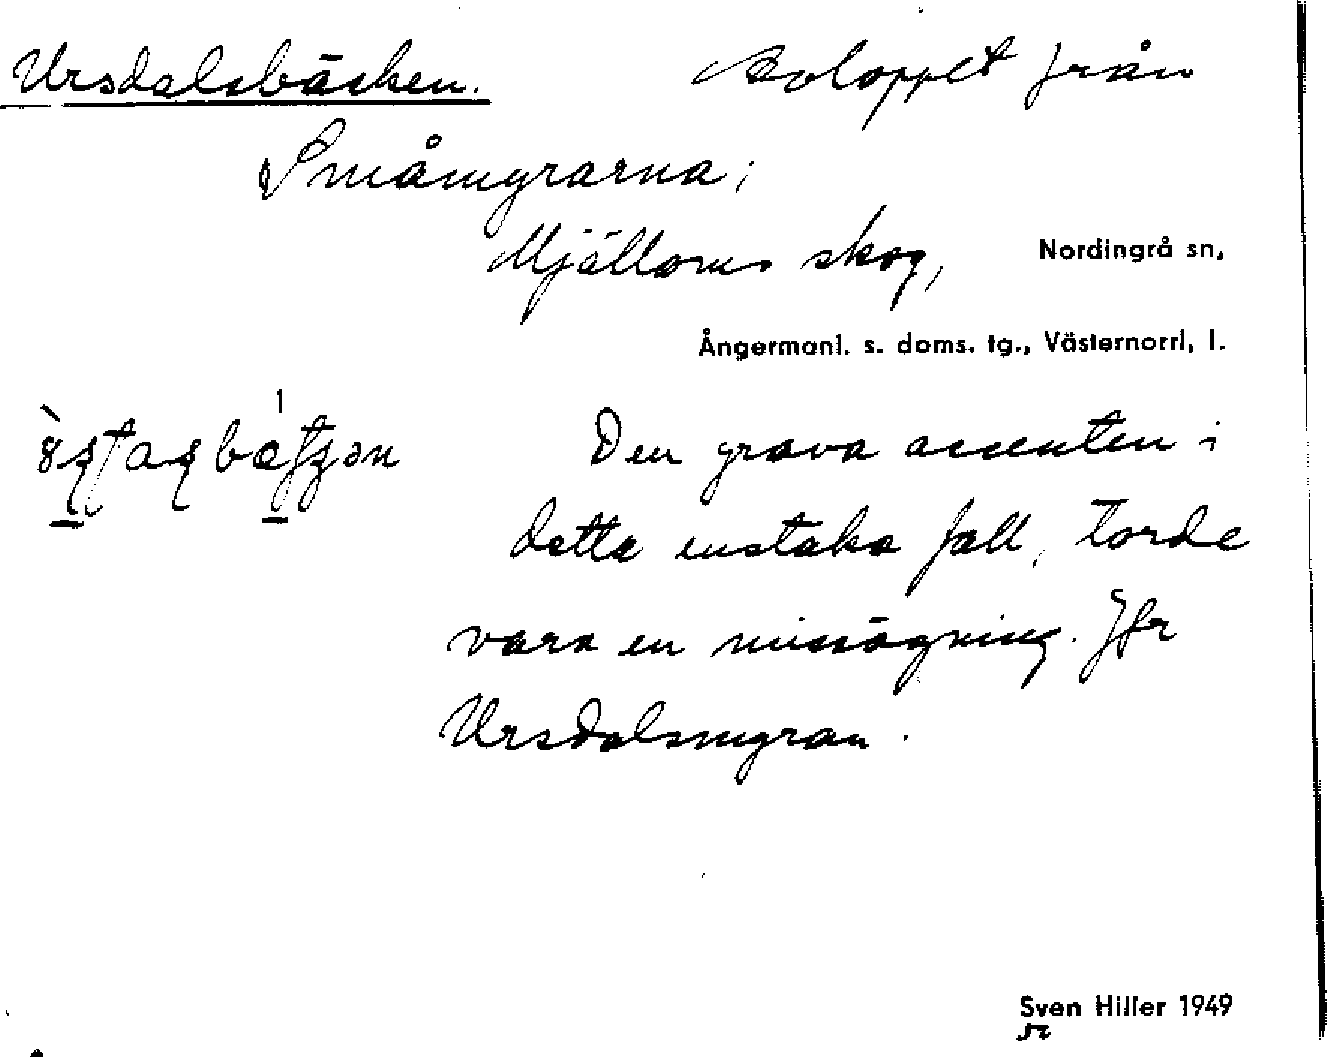 Ursdalsbäcken. Avloppet från
Småmyrarna;
Mjälloms skog, Nordingrå sn,
Ångermanl. s. doms. tg., Västernorrl, l.
Den grava accenten i
detta enstaka fall, torde
vara en missägning. Jfr
Ursdalsmyran.
Sven Hiller 1949